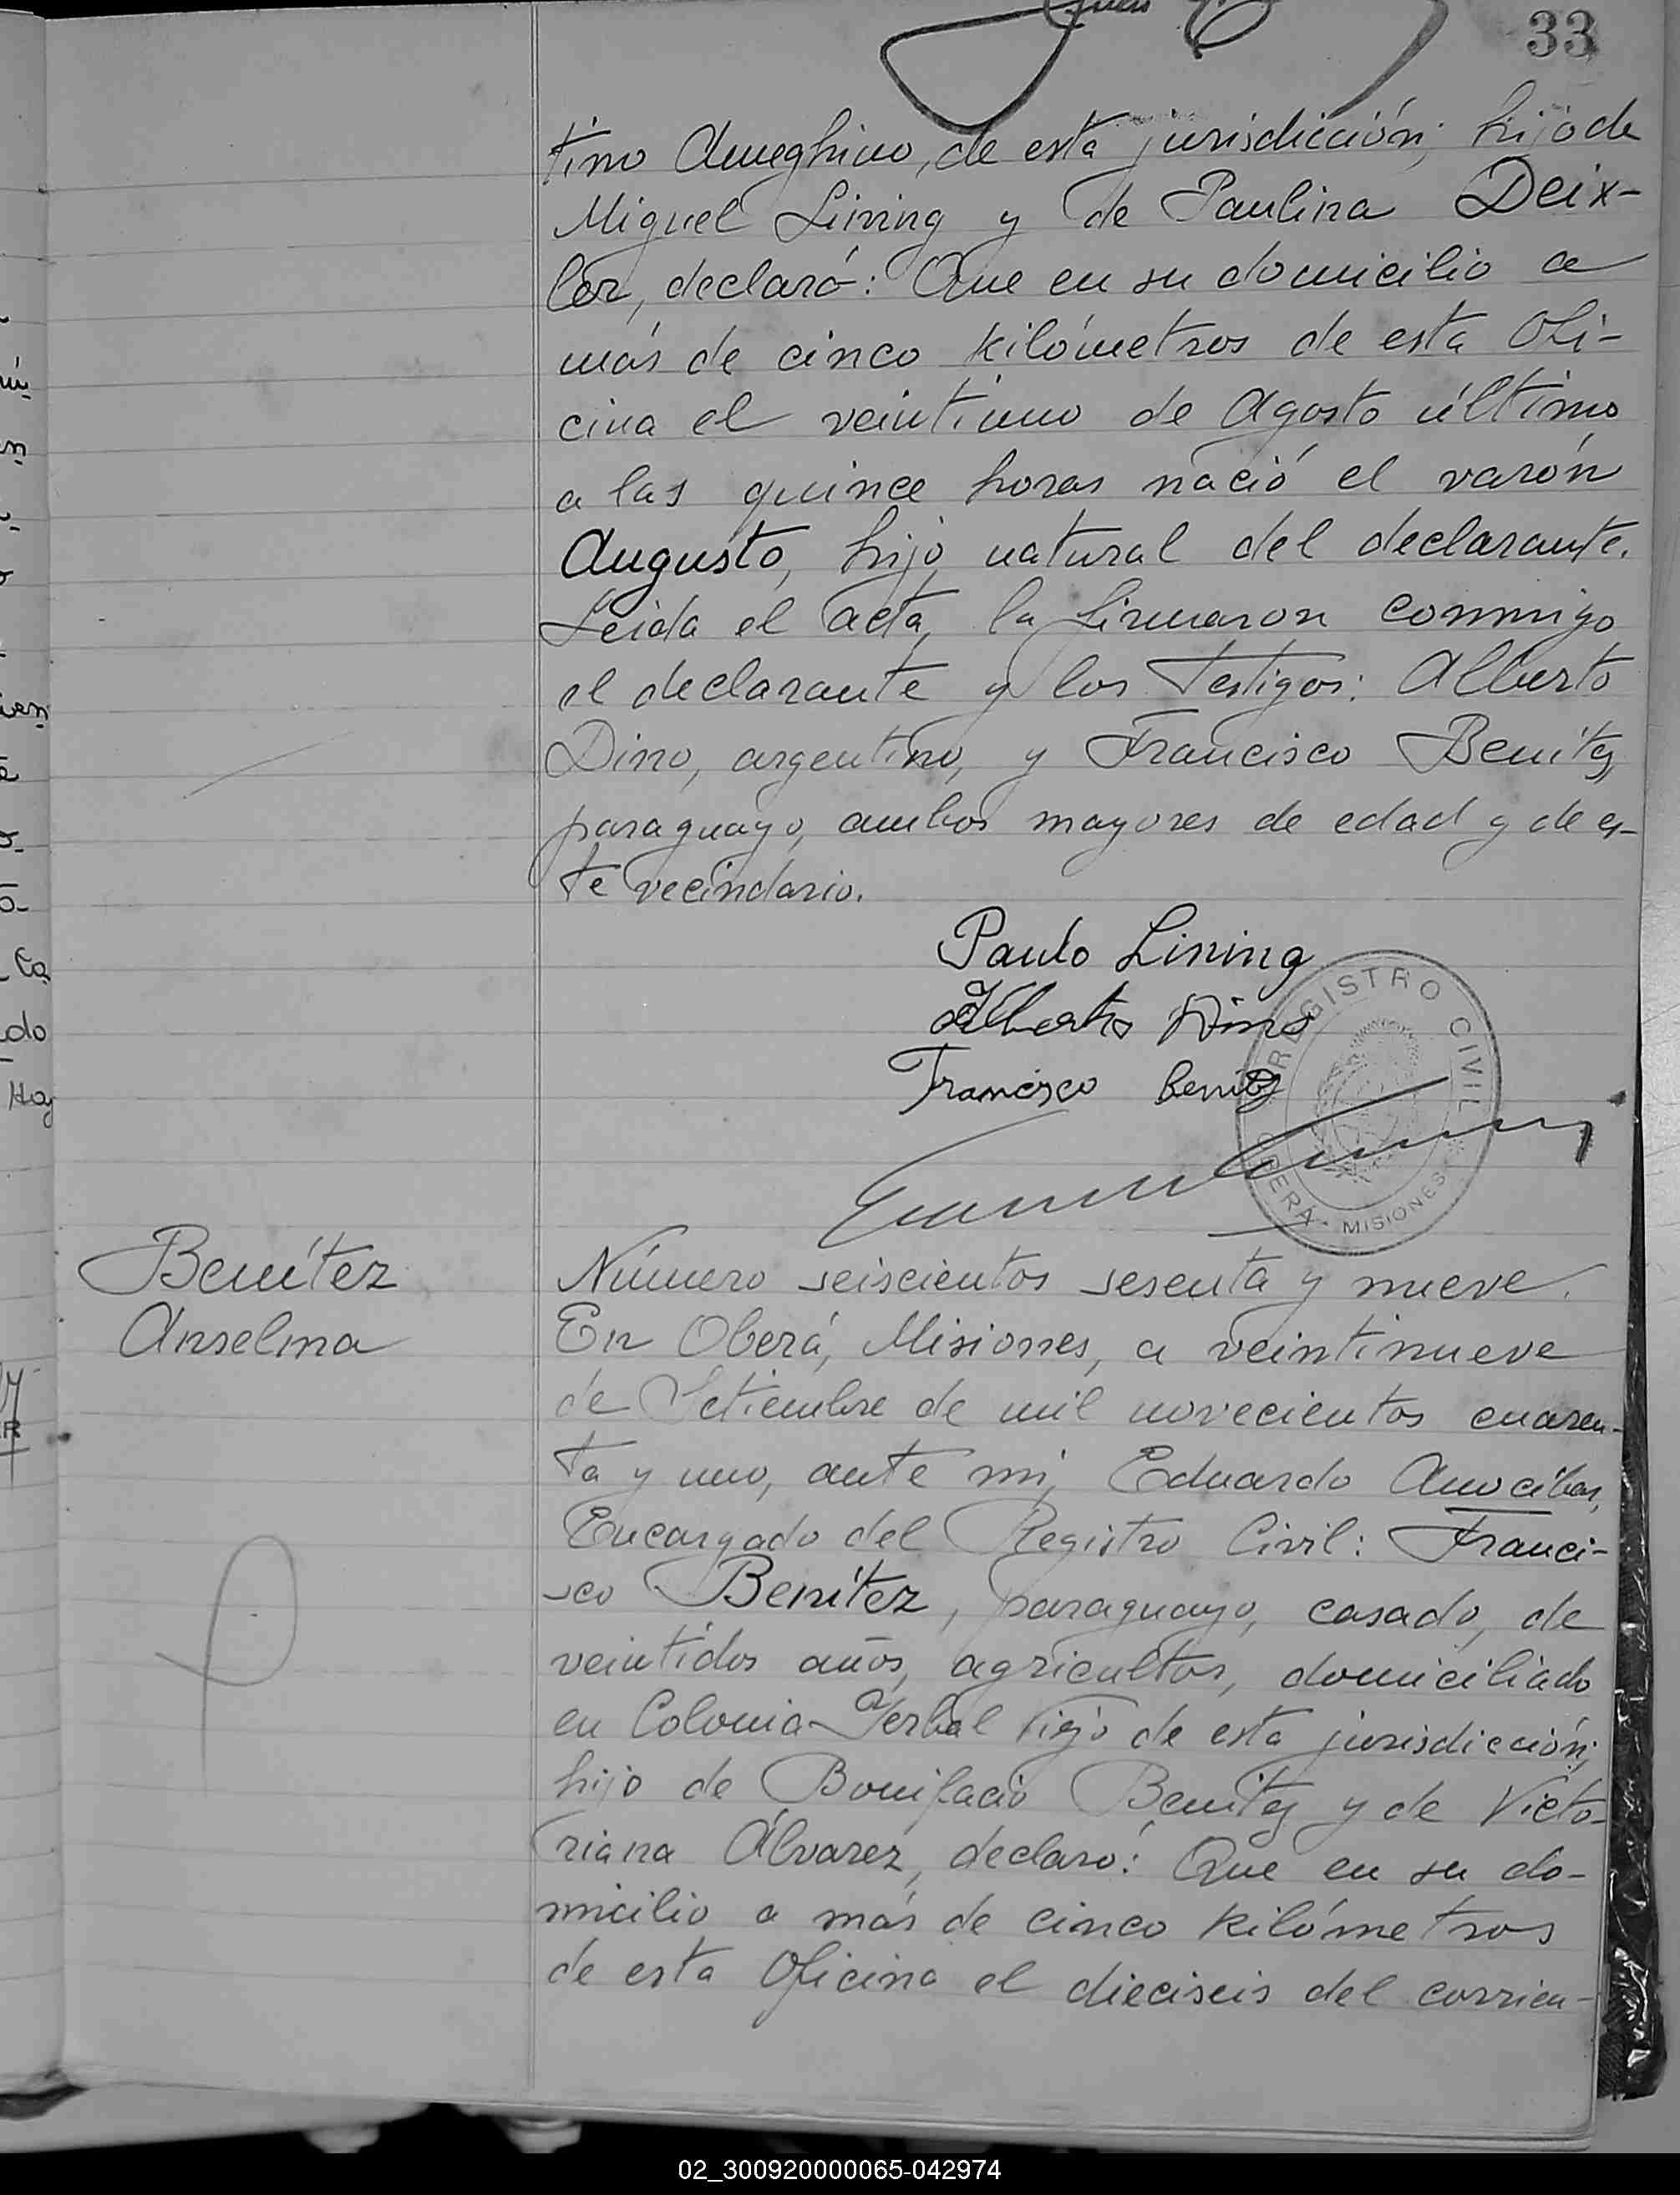 33
tino Ameghino, de esta jurisdicción; hijo de
Miguel Lining y de Paulina Deix-
ler, declaró: Que en su domicilio a
más de cinco kilómetros de esta Ofi-
cina el veintiuno de Agosto último
a las quince horas nació el varón
Augusto, hijo natural del declarante.
Leída el acta, la firmaron conmigo
el declarante y los testigos: Alberto
Dino, argentino, y Francisco Benítez,
paraguayo, ambos mayores de edad y de es-
te vecindario.
Paulo Lining
Alberto Dino
Francisco Benitez
REGISTRO CIVIL
OBERÁ - MISIONES
Benítez
Anselma
Número seiscientos sesenta y nueve.
En Oberá, Misiones, a veintinueve
de Setiembre de mil novecientos cuaren-
ta y uno, ante mí, Eduardo
Encargado del Registro Civil: Franci-
sco Benítez, paraguayo, casado, de
veintidos años, agricultor, domiciliado
en Colonia Yerbal Viejo de esta jurisdicción;
hijo de Bonifacio Benítez y de Victo-
riana Álvarez, declaró: Que en su do-
micilio a más de cinco kilómetros
de esta Oficina el dieciseis del corrien-
02_300920000065-042974